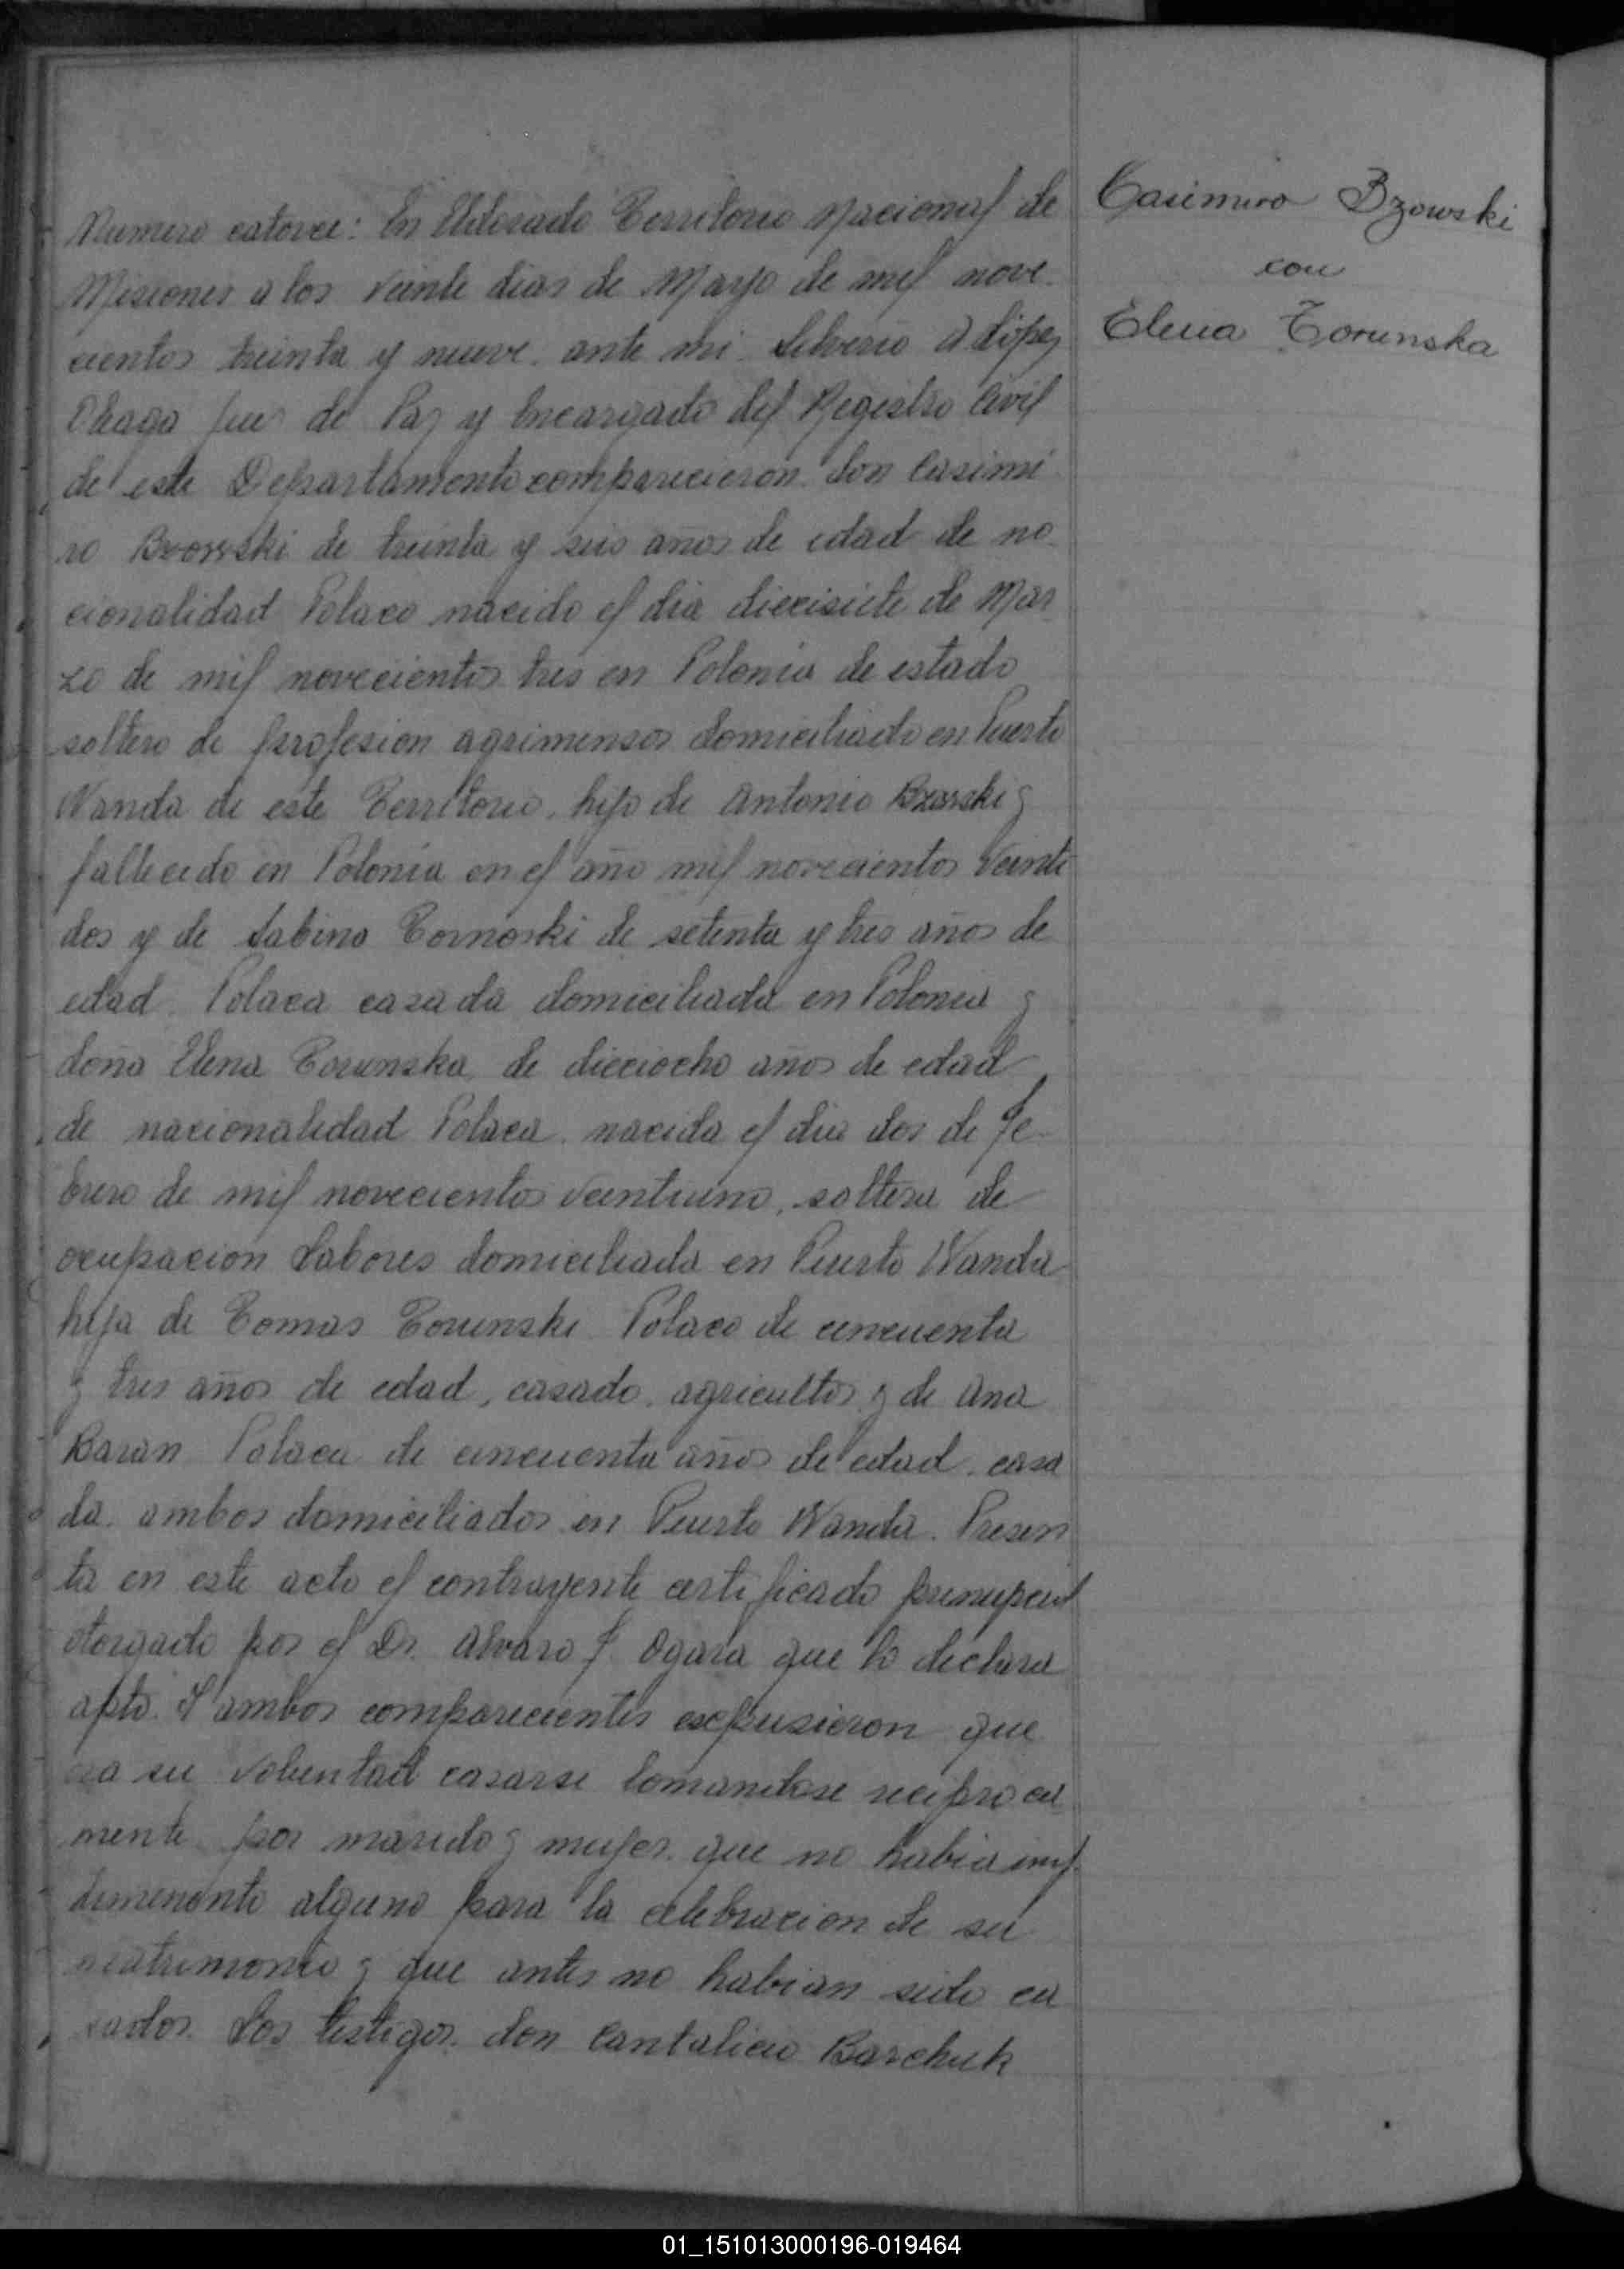 Casimiro Bzowski
con
Elena Torunska
Numero catorce: En Eldorado Territorio Nacional de
Misiones a los veinte dias de Mayo de mil nove-
cientos treinta y nueve. ante mi Silverio A López
Juez de Paz y Encargado del Registro Civil
de este Departamento comparecieron don Casimi
ro Bzowski de treinta y seis años de edad de na
cionalidad Polaco nacido el dia diecisiete de Mar
zo de mil novecientos tres en Polonia de estado
soltero de profesion agrimensor domiciliado en Puerto
Wanda de este Territorio, hijo de Antonio Bzowski y
fallecido en Polonia en el año mil novecientos veinte
dos y de Sabina de setenta y tres años de
edad. Polaca casada domiciliada en Polonia y
doña Elena Torunska de dieciocho años de edad
de nacionalidad Polaca. nacida el dia dos de Fe-
brero de mil novecientos veintiuno, soltera de
ocupacion Labores domiciliada en Puerto Wanda
hija de Tomas Torunski Polaco de cincuenta
y tres años de edad, casado, agricultor y de Ana
Baran Polaca de cincuenta años de edad. casa
da. ambos domiciliados en Puerto Wanda. Presen
ta en este acto el contrayente certificado prenupcial
otorgado por el Dr. Alvaro J. Ogara que lo declara
apto. Y ambos comparecientes expusieron que
era su voluntad casarse tomandose reciproca
mente por marido y mujer. que no habia imp
dimento alguno para la celebracion de su
matrimonio y que antes no habian sido ca
sados. Los testigos. don Cantalicio Barchuk
01_151013000196-019464